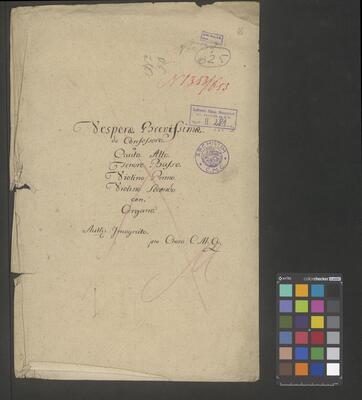 625
N 1353/653
Vesperæ Brevissimæ
de Confessore
Canto Alto
Tenore Basso
Violino Primo
Violino Secondo
con
Organo
Auth: Incognito
pro Choro C. M. G.